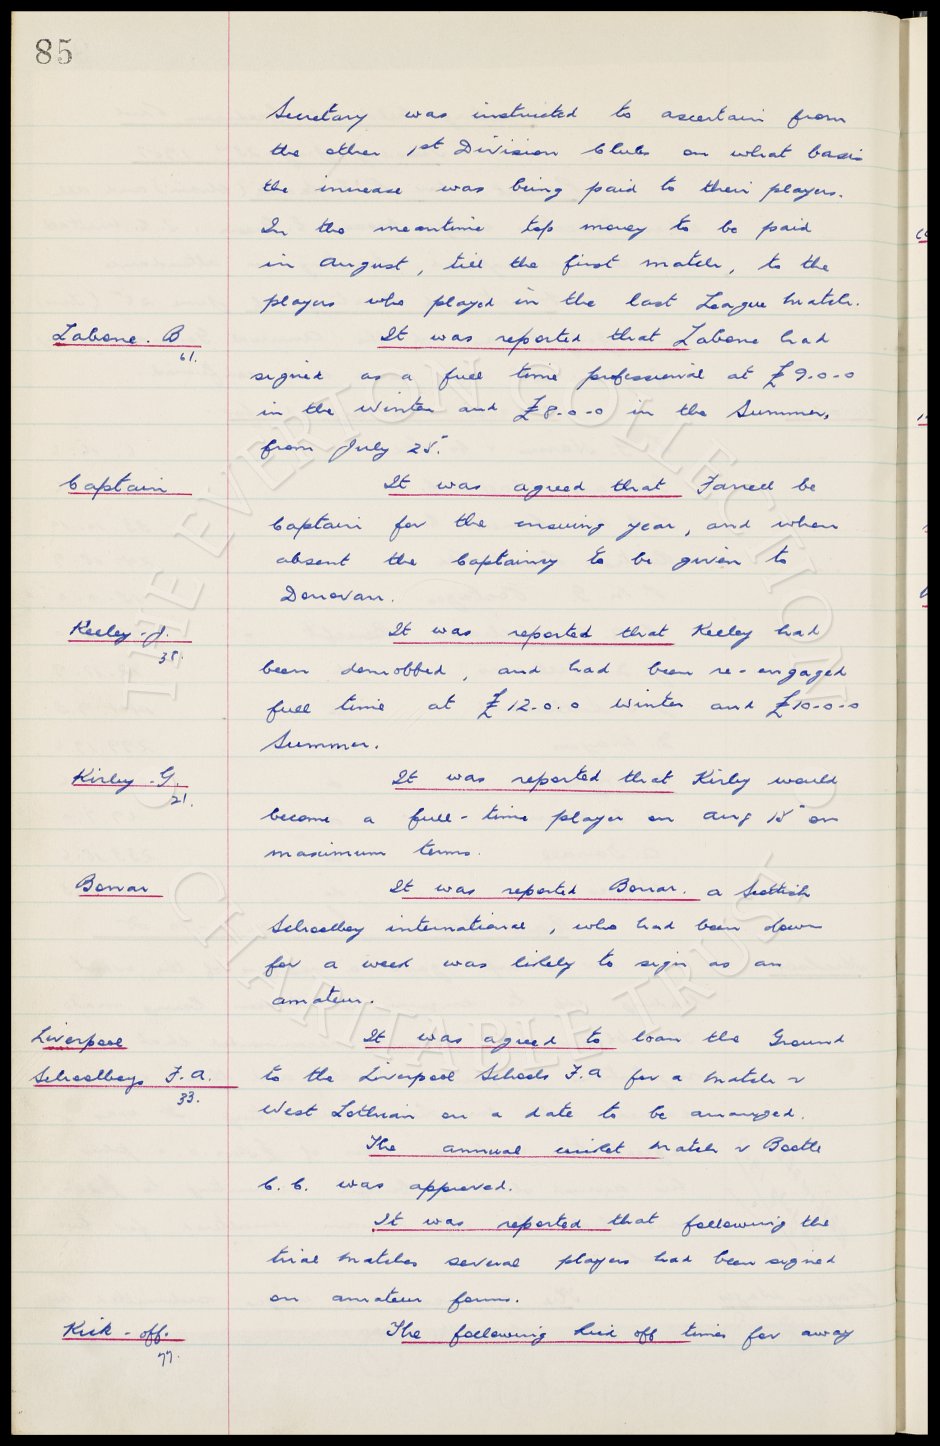 85
Secretary was instructed to ascertain from
the other 1st Division Clubs on what basis
the increase was being paid to their players.
In the meantime top money to be paid
in August, till the first match, to the
players who played in the last League match.
Labone. B
61.
It was reported that Labone had
signed as a full time professional at £9-0-0
in the Winter and £8-0-0 in the Summer,
from July 25.
Captain
It was agreed that Farrell be
Captain for the ensuing year, and when
absent the Captaincy to be given to
Donovan.
Keeley. J.
38.
It was reported that Keeley had
been demobbed, and had been re-engaged
full time at £12.0.0 Winter and £10-0-0
Summer.
Kirby. G.
21.
It was reported that Kirby would
become a full-time player on Aug 15 on
maximum terms.
Bonar
It was reported Bonar. a Scottish
Schoolboy international, who had been down
for a week was likely to sign as an
amateur.
Liverpool
Schoolboys F.A.
33.
It was agreed to loan the Ground
to the Liverpool Schools F.A for a match v
West Lothian on a date to be arranged.
The annual cricket match v Bootle
C.C. was approved.
It was reported that following the
trial matches several players had been signed
on amateur forms.
Kick-off.
77.
The following kick off times for away
© THE EVERTON COLLECTION
CHARITABLE TRUST